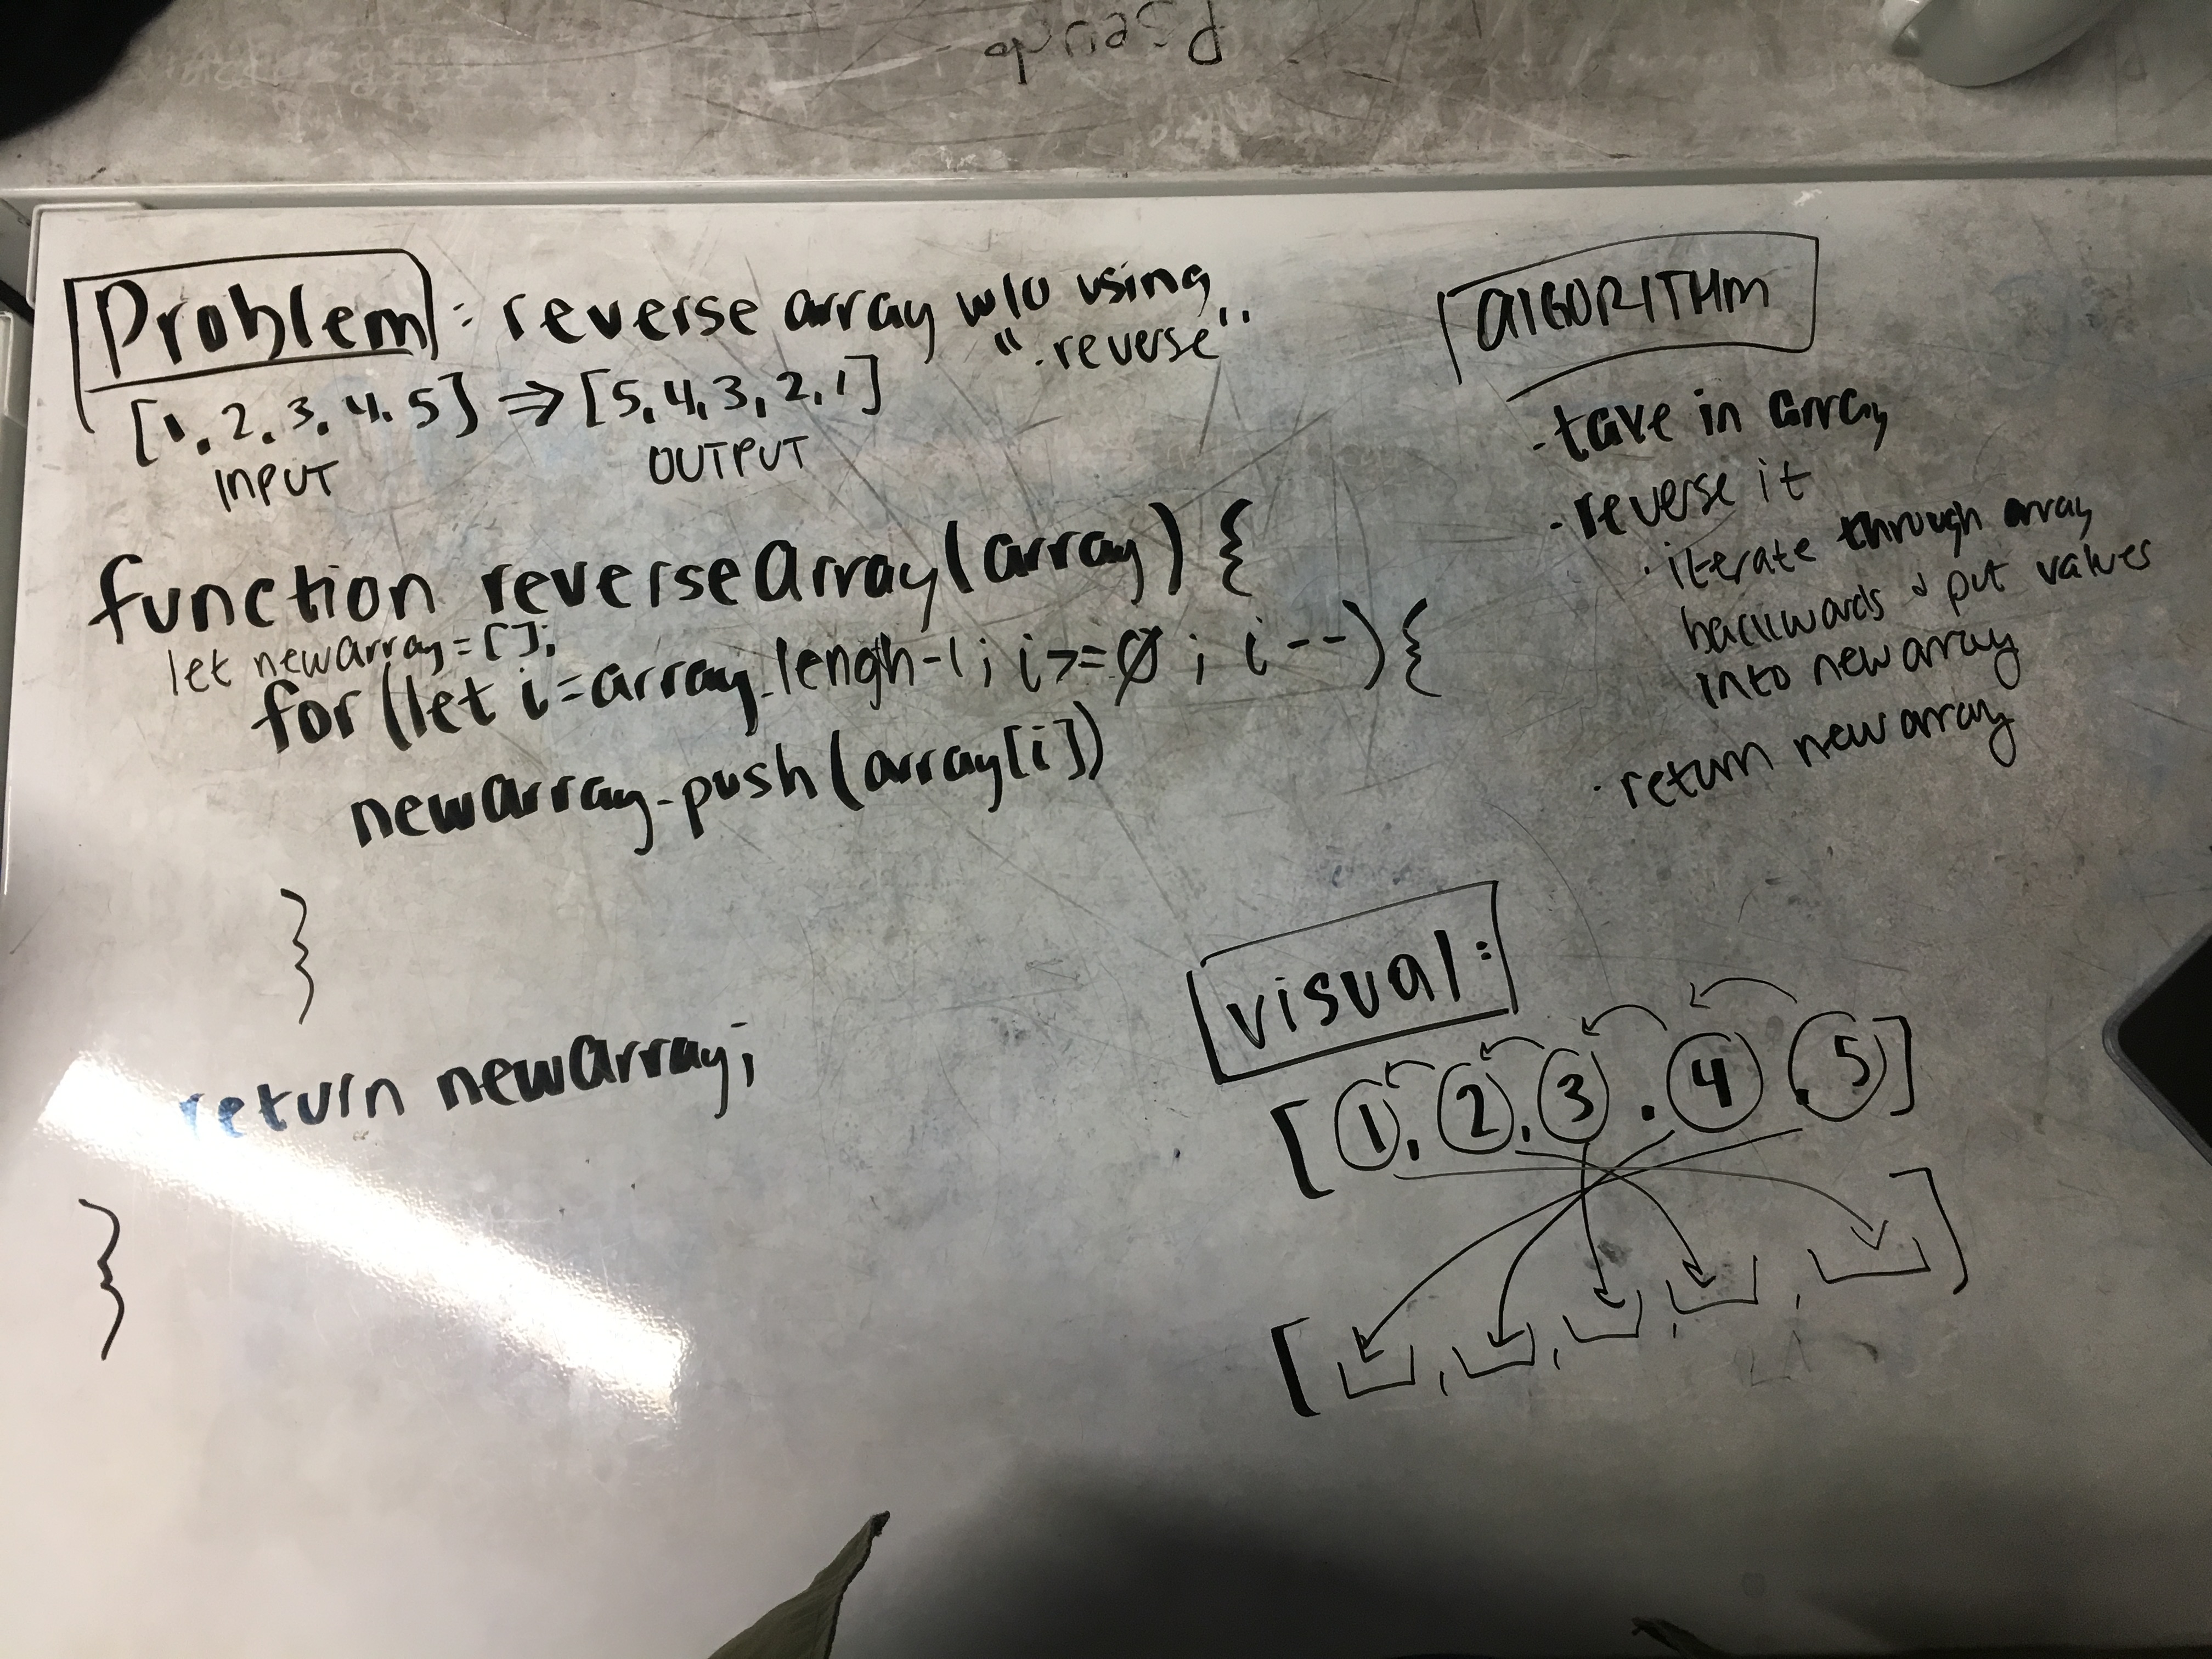 Pseudo
Problem : reverse array w/o using
".reverse"
[1, 2, 3, 4, 5] ⇒ [5, 4, 3, 2, 1]
INPUT
OUTPUT
function reverseArray(array) {
let newArray = [];
for (let i = array.lengh-1; i >= 0; i--) {
newArray.push(array[i])
}
return newArray;
}
ALGORITHM
- take in array
- reverse it
· iterate through array
backwards & put values
into new array
· return new array
visual:
[1, 2, 3, 4, 5]
[ , , , , ]